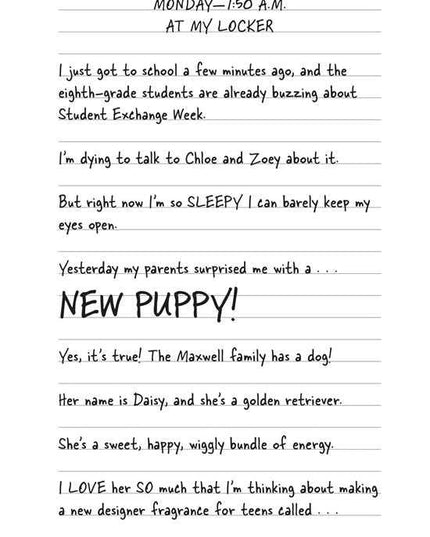 MONDAY—7:50 A.M.
AT MY LOCKER
I just got to school a few minutes ago, and the
eighth-grade students are already buzzing about
Student Exchange Week.
I'm dying to talk to Chloe and Zoey about it.
But right now I'm so SLEEPY I can barely keep my
eyes open.
Yesterday my parents surprised me with a . . .
NEW PUPPY!
Yes, it's true! The Maxwell family has a dog!
Her name is Daisy, and she's a golden retriever.
She's a sweet, happy, wiggly bundle of energy.
I LOVE her SO much that I'm thinking about making
a new designer fragrance for teens called . . .